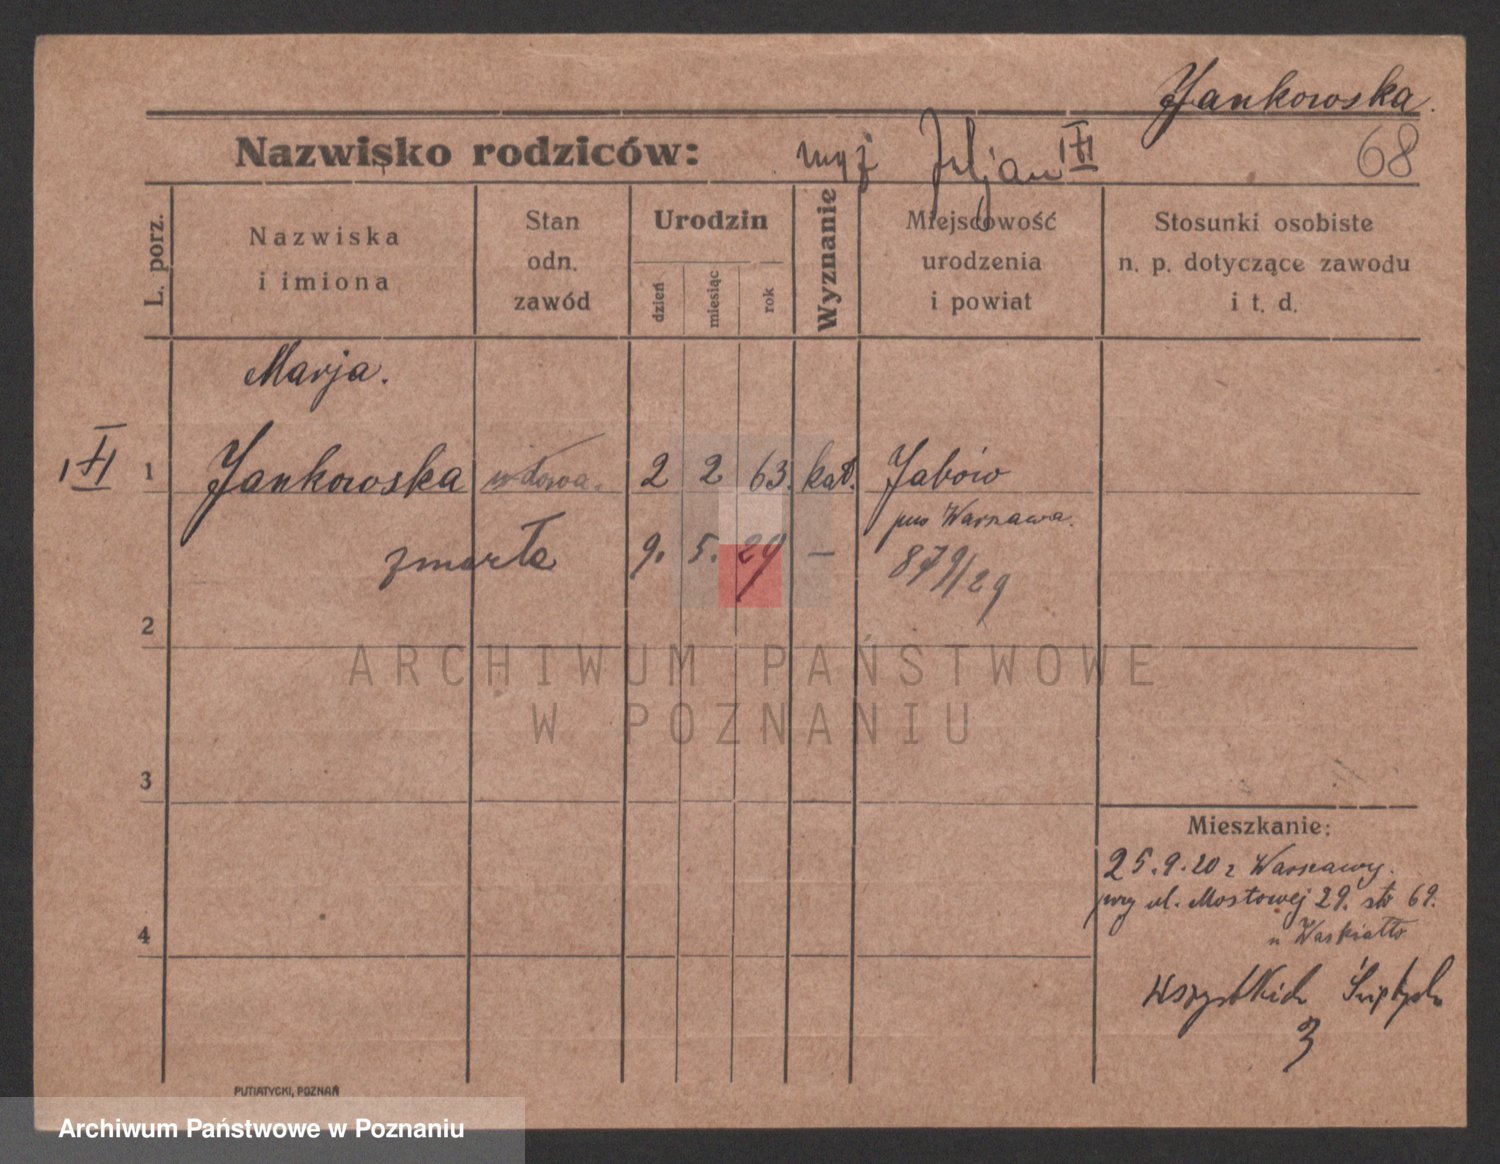 Jankowska.
Nazwisko rodziców: mąż Juljan III
68
L. porz.
Nazwiska
i imiona
Stan
odn.
zawód
Urodzin
dzień
miesiąc
rok
Wyznanie
Miejscowość
urodzenia
i powiat
Stosunki osobiste
n. p. dotyczące zawodu
i t. d.
Marja.
1 Jankowska wdowa. 2 2 63. kat. Jabów
pow Warszawa.
zmarła 9. 5. 29 — 879/29
2
ARCHIWUM PAŃSTWOWE
W POZNANIU
3
Mieszkanie:
25.9.20 z Warszawy.
przy ul. Mostowej 29. 69.
4
Wszystkich Świętych
3
PUTIATYCKI, POZNAŃ
Archiwum Państwowe w Poznaniu